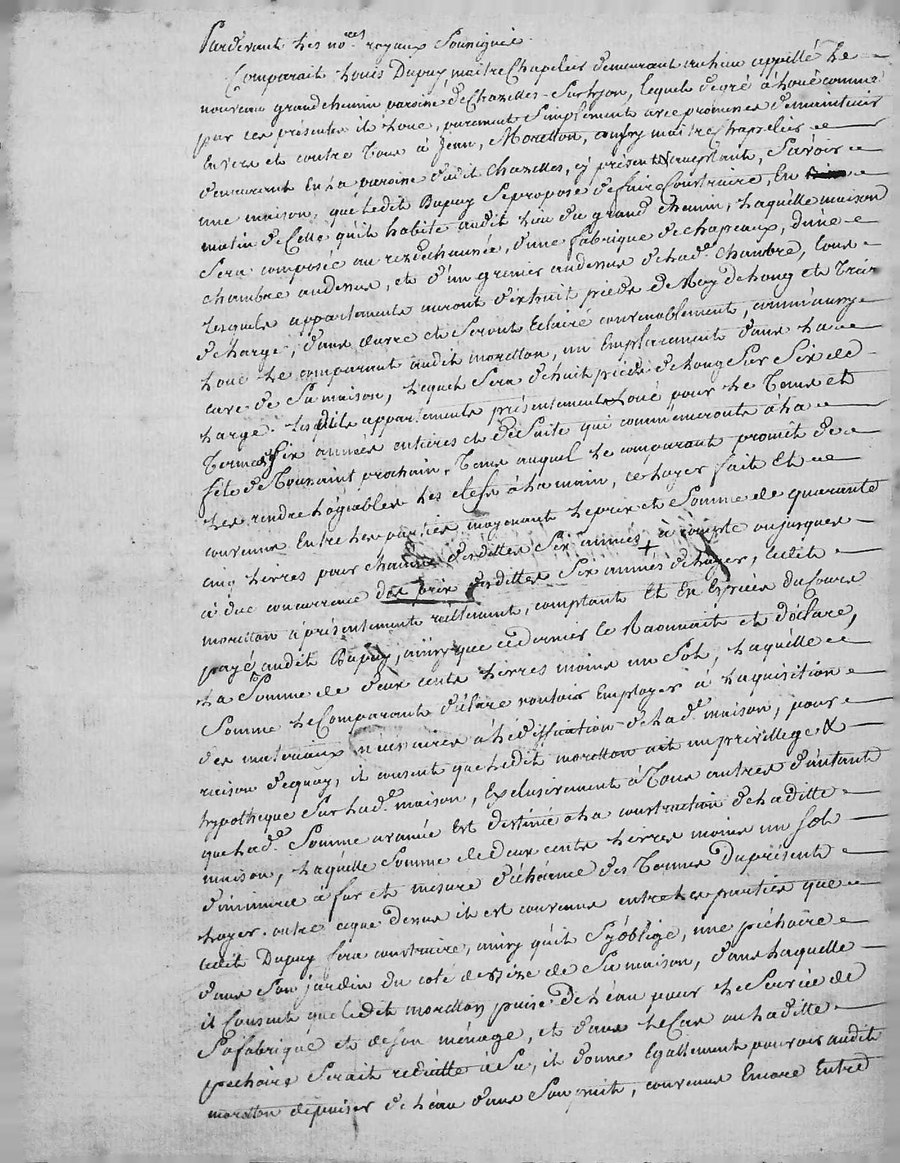 Pardevant les no.res royaux Soussignés
Comparait Louis Dupuy maitre Chapelier demeurant au lieu appellé Le
nouveau grand chemin paroisse de Chazelles-Sur Lyon, lequel de gré à Loué comme
par ces présentes il Loue, purement Simplement avec promesse de maintenir
Envers et contre Tous à Jean, Moretton, aussy maitre Chapelier
demeurant En La paroisse dudit Chazelles, cy présent & acceptant, Savoir
une maison, que Ledit Dupuy Se propose de faire Construire, En
matin de Celle qu'il habite audit Lieu du grand chemin, Laquelle maison
Sera composée au rezdechaussée, d'une fabrique de chapeaux, d'une
chambre audessus, et d'un grenier audessus de Lad.e chambre, tous
Lesquels appartements auront dixhuit pieds de Roy de Long et Treize
de Large, dans œuvre et Seront Eclairé convenablement, comm'aussy
Loue Le comparant audit moretton, un Emplacement dans La
cave de Sa maison, Lequel Sera de huit pieds de Long Sur Six de
Large. Lesdits appartements présentement Loué pour Le Tems et
Terme Six années entières et de Suite qui commenceronts à La
fête de Toussaint prochain, Tems auquel Le comparant promet de
Les rendre Logiables Les clefs à La main, ce Loyer fait Et
convenus Entre Les parties moyenant Le prix et Somme de quarante
cinq Livres pour chacune desdittes Six années + à compte ou jusques
à due concurrence des prix desdittes Six années de Loyer, Ledit
moretton a présentement réellement, comptant Et En Espèces du Cours
payé audit Dupuy, ainsy que ce dernier le Raconnait et déclare,
La Somme de deux cents Livres moins un Sol, Laquelle
Somme Le Comparant déclare vouloir Employer à L'aquisition
des matériaux nécessaires à L'édiffication de Lad.e maison, pour
raison de quoy, il consent que Ledit moretton ait un privillege &
hypotheque Sur Lad.e maison, Exclusivement à Tous autres d'autant
que Lad.e Somme avancée Est destinée à La construction de Laditte
maison, Laquelle Somme de deux cents Livres moins un Sol
diminuera à fur et mesure d'échéance des Termes du présent
Loyer. outre ce que dessus il est convenus entre Les parties que
Ledit Dupuy fera construire, ainsy qu'il S'y oblige, une péchoire
dans Son jardin du coté de bize de Sa maison, dans Laquelle
il Consent que Ledit moretton puise de L'eau pour Le Service de
Sa fabrique et de Son ménage, et dans Le Cas ou Laditte
pechoire Serait réduitte à Sec, il donne Egallement pouvoir audit
moretton de puiser de L'eau dans Son puit, convenus Encore Entre